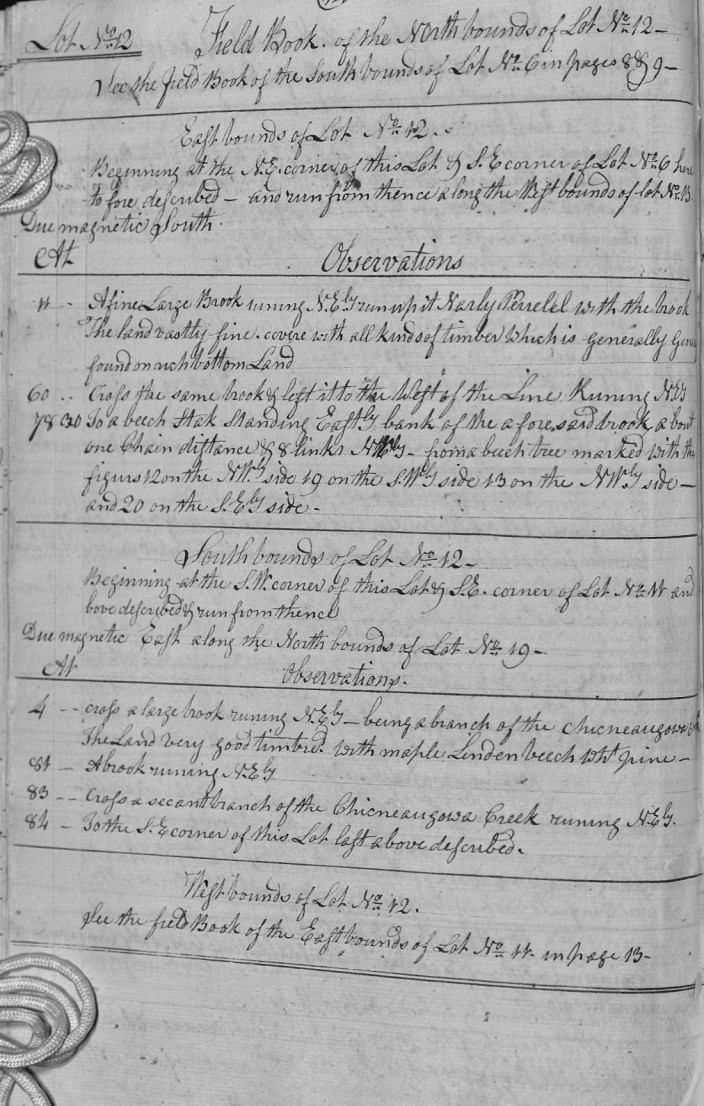 Lot No. 12
Field Book of the North bounds of Lot No. 12 -
See the field Book of the South bounds of Lot No. 6 in pages 8 & 9 -
East bounds of Lot No. 12.
Beginning at the N.E. corner of this Lot & S.E corner of Lot No. 6 here
to fore described - and run from thence along the West bounds of lot No. 13.
Due magnetic South.
At
Observations
11 - A fine Large Brook runing N.Ely run up it Narly Perrelel with the brook
The land vastly fine. covere with all kinds of timber Which is generally
found on rich bottom Land
60 .. Cross the same brook & left it to the West of the Line Runing N.Ely
78 30 To a beech Stak Standing Eastly bank of the a fore, said brook a bout
one Chain distance & 8 links - from a beech tree marked with the
figurs 12 on the N.Wly side 19 on the S.Wly side 13 on the N.Wly side -
and 20 on the S.Ely side -
South bounds of Lot No. 12 -
Beginning at the S.W. corner of this Lot & S.E. corner of Lot No. 11 and
bove described & run from thence
Due magnetic East along the North bounds of Lot No. 19 -
At
Observations.
4 -- cross a large brook runing N.Ely - being a branch of the Chicneaugowa
The Land very good timbred With maple Linden beech Wht pine -
81 - A brook runing N.Ely
83 -- Cross a secant branch of the Chicneaugowa Creek runing N.Ely.
84 - To the S.E corner of this Lot last above described.
West bounds of Lot No. 12.
See the field Book of the East bounds of Lot No. 11 - in page 13 -